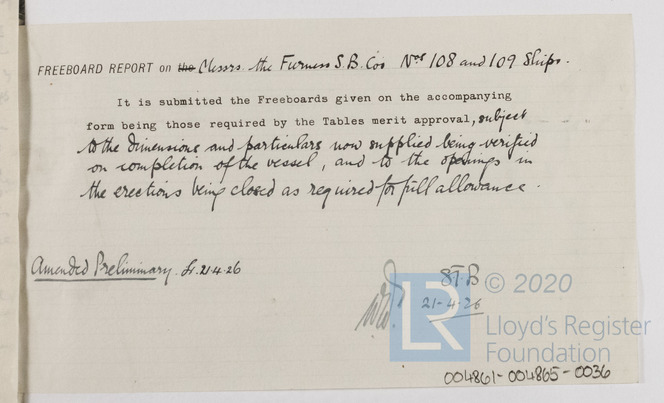 FREEBOARD REPORT on the Messrs. the Furness S.B. Cos Nos 108 and 109 Ships.
It is submitted the Freeboards given on the accompanying
form being those required by the Tables merit approval, subject
to the dimensions and particulars now supplied being verified
on completion of the vessel, and to the openings in
the erections being closed as required for full allowance.
Amended Preliminary. 21.4.26
STB
21-4-26
LR
© 2020
Lloyd's Register
Foundation
004861-004865-0036